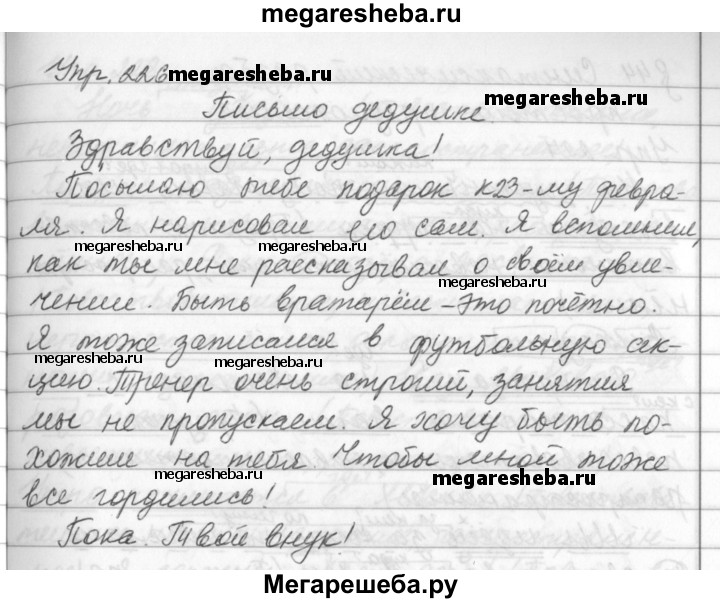 megaresheba.ru
Упр. 226 megaresheba.ru
Письмо дедушке. megaresheba.ru
Здравствуй, дедушка!
Посылаю тебе подарок к 23-му февра-
ля. Я нарисовал его сам. Я вспомнил,
megaresheba.ru megaresheba.ru megaresheba.ru
как ты мне рассказывал о своём увле-
чении. Быть вратарём – это почётно.
Я тоже записался в футбольную сек-
megaresheba.ru megaresheba.ru
цию. Тренер очень строгий, занятия
мы не пропускаем. Я хочу быть по-
хожим на тебя. Чтобы мной тоже
megaresheba.ru megaresheba.ru
все гордились!
Пока. Твой внук!
Мегарешеба.ру